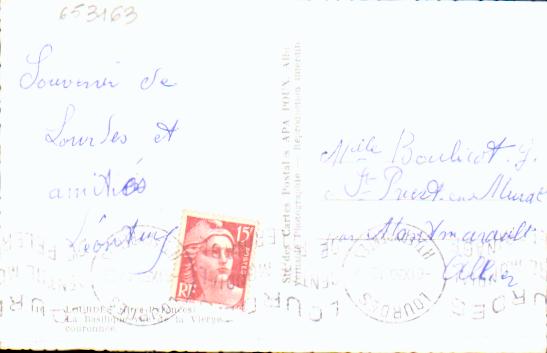 653163
Souvenir de
Lourdes et
amitiés
Léontine
Mlle Boulicot. G.
St Priest en Murat
par Montmarault
Allier
15F
POSTES
RF
LOURDES
Sté des Cartes Postales APA POUX, Albi
Photographie — Reproduction interdite
LOURDES
La Basilique et de la Vierge
couronnée